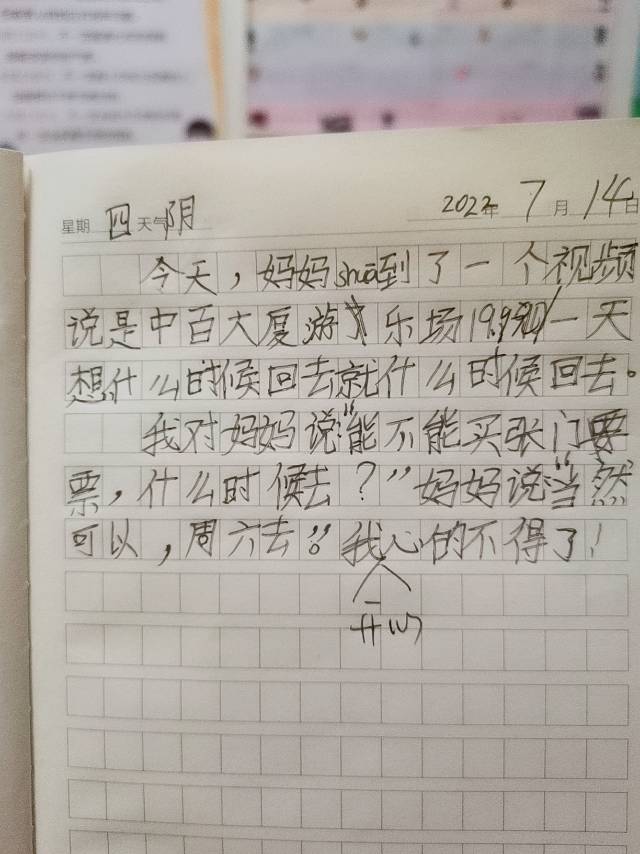 星期 四 天气 阴 2022年 7月 14日
今天，妈妈shuā到了一个视频
说是中百大厦游乐场19.9一天
想什么时候回去就什么时候回去。
我对妈妈说“能不能买张门票
票，什么时候去？”妈妈说“当然
可以，周六去”。我心的不得了！
开心